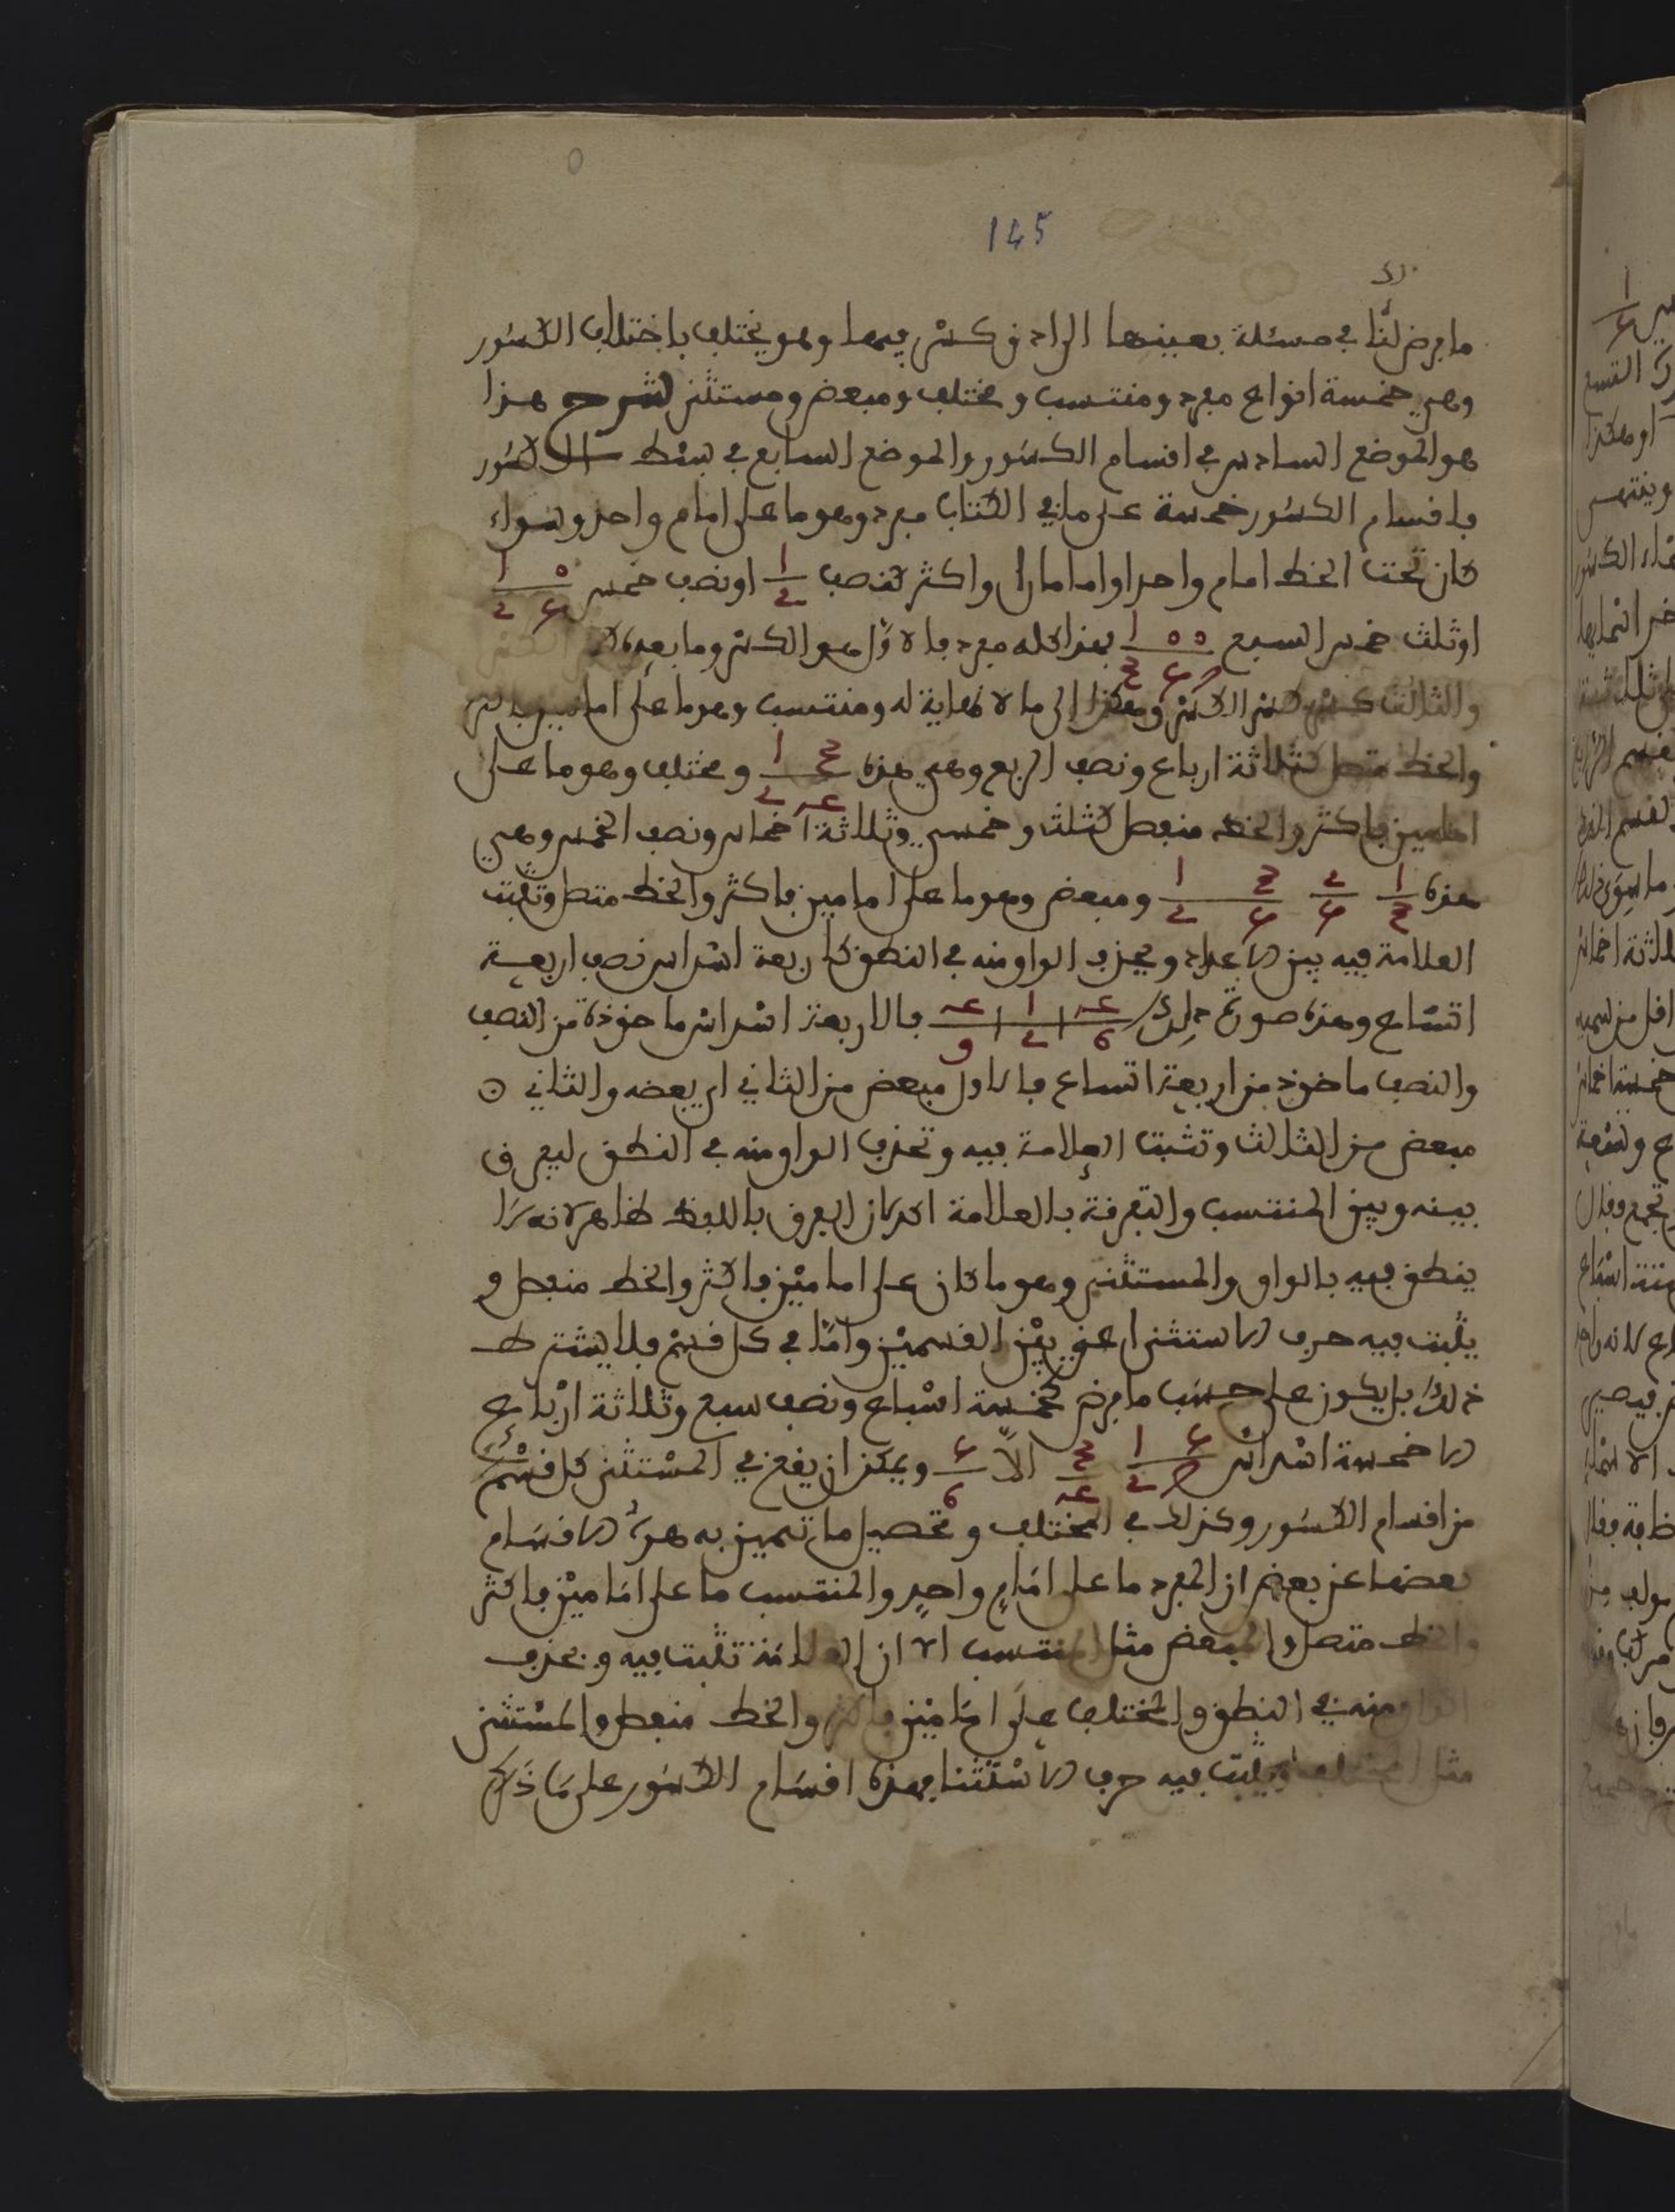 145
ما فرض لنا في مسئلة بعينها الى ادق كسر فيها وهو يختلف باختلاف الكسور
وهي خمسة انواع مفرد ومنتسب ومختلف ومبعض ومستثنى شرح هذا
هو الموضع السادس في اقسام الكسور والموضع السابع في بسط الكسور
فاقسام الكسور خمسة على ما في الكتاب مفرد وهو ما على امام واحد وسواء
كان تحت الخط امام واحد او امامان واكثر كنصف ١/٢ او نصف خمس ٠ ١/٥ ٢
او ثلث خمس السبع ٠ ٠ ١/٧ ٥ ٣ فهذا كله مفرد فالاول هو الكسر وما بعده
والثالث كسر كسر الكسر وهكذا الى ما لا نهاية له ومنتسب وهو ما على امامين فاكثر
والخط متصل كثلاثة ارباع ونصف الربع وهي هذه ٣ ١/٤ ٢ ومختلف وهو ما على
امامين فاكثر والخط منفصل كثلث وخمسين وثلاثة اخماس ونصف الخمس وهي
هذه ١/٣ ٢/٥ ٣ ١/٥ ٢ ومبعض وهو ما على امامين فاكثر والخط متصل وتثبت
العلامة فيه بين الاعداد ويحذف الواو منه في النطق كاربعة اسداس نصف اربعة
اتساع وهذه صورة ذلك ٤/٦ | ١/٢ | ٤/٩ فالاربعة اسداس ماخوذة من النصف
والنصف ماخوذ من اربعة اتساع فالاول مبعض من الثاني اي بعضه والثاني
مبعض من الثالث وتثبت العلامة فيه وتحذف الواو منه في النطق ليفرق
بينه وبين المنتسب والتفرقة بالعلامة اكد لان الفرق باللفظ ظاهر لانه
ينطق فيه بالواو والمستثنى وهو ما كان على امامين فاكثر والخط منفصل و
يثبت فيه حرف الاستثنا عن بين القسمين واما في كل قسم فلا يشترط
ذلك بل يكون على حسب ما فرض كخمسة اسباع ونصف سبع وثلاثة ارباع
الا خمسة اسداس ٥ ١/٧ ٢ ٣/٤ الا ٥/٦ ويمكن ان يقع في المستثنى كل قسم
من اقسام الكسور وكذلك في المختلف وتحصيل ما تميز به هذه الاقسام
بعضها عن بعض ان المفرد ما على امام واحد والمنتسب ما على امامين فاكثر
والخط متصل والمبعض مثل المنتسب الا ان العلامة تثبت فيه ويحذف
الواو منه في النطق والمختلف على امامين فاكثر والخط منفصل والمستثنى
مثل المختلف ويثبت فيه حرف الاستثنا فهذه اقسام الكسور على ما ذكر